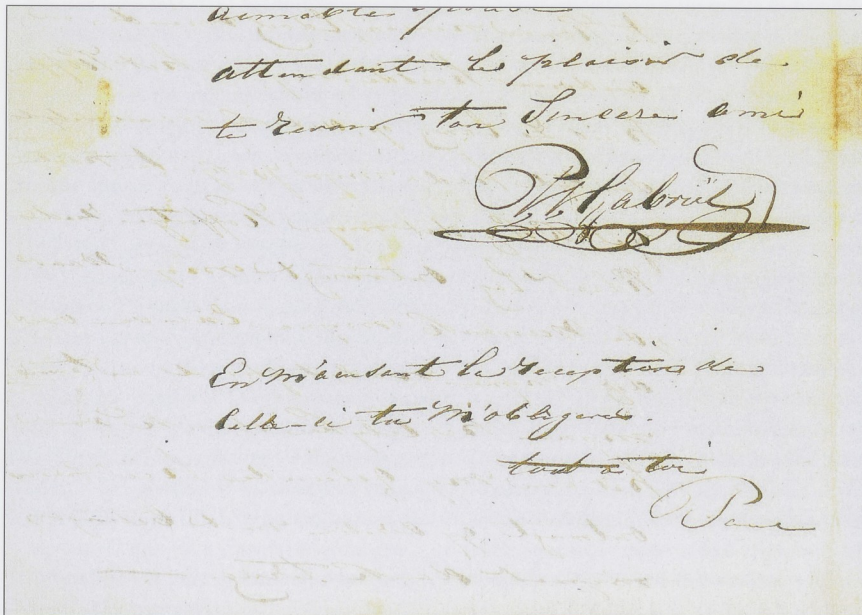 aimable epouse
attendant le plaisir de
te revoir ton Sincere ami
Gabriël
En m'acusant la reception de
celle-ci tu m'obligeras.
tout a toi
Paul